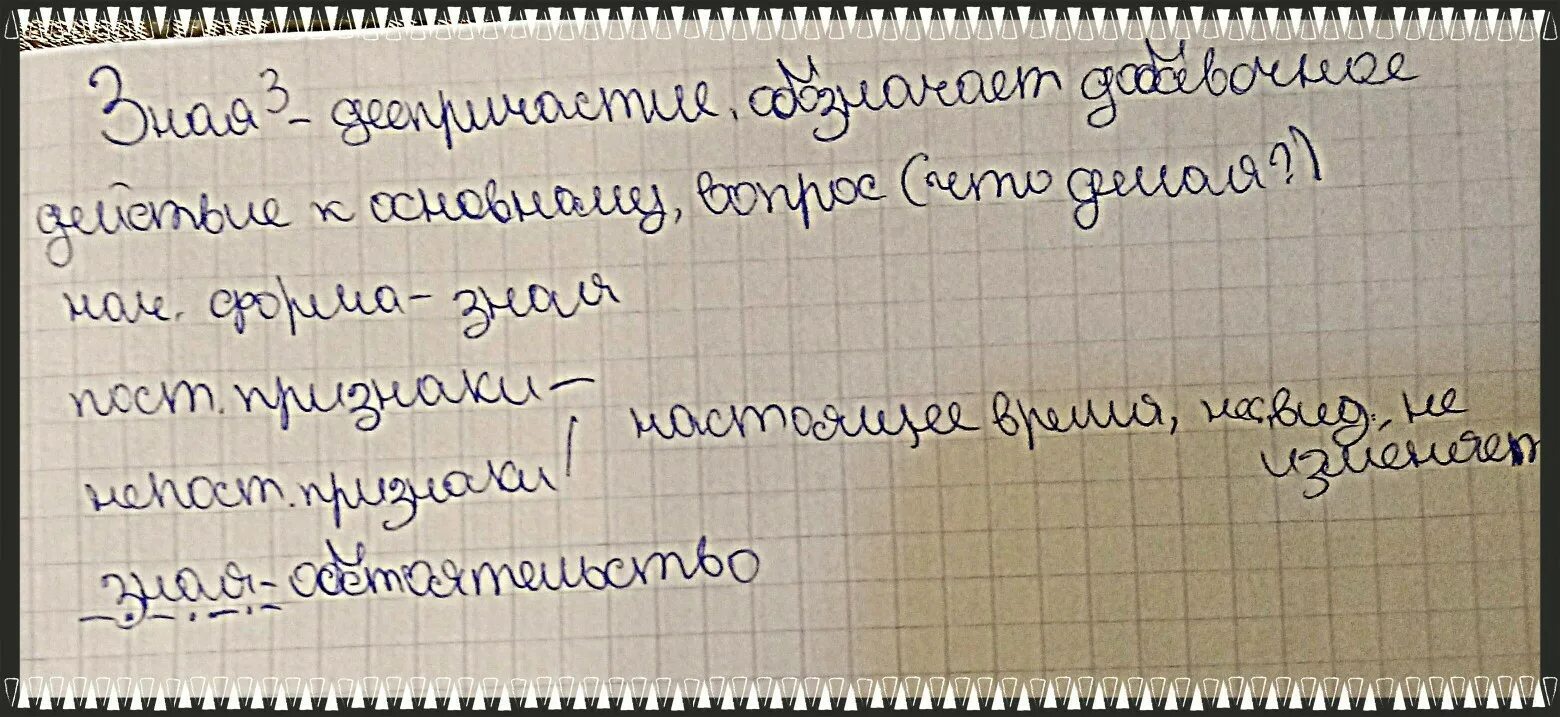 Зная³ - деепричастие, обозначает добавочное
действие к основному, вопрос (что делая?)
нач. форма - зная
пост. признаки -
непост. признаки
настоящее время, нес.вид., не
изменяет
зная - обстоятельство